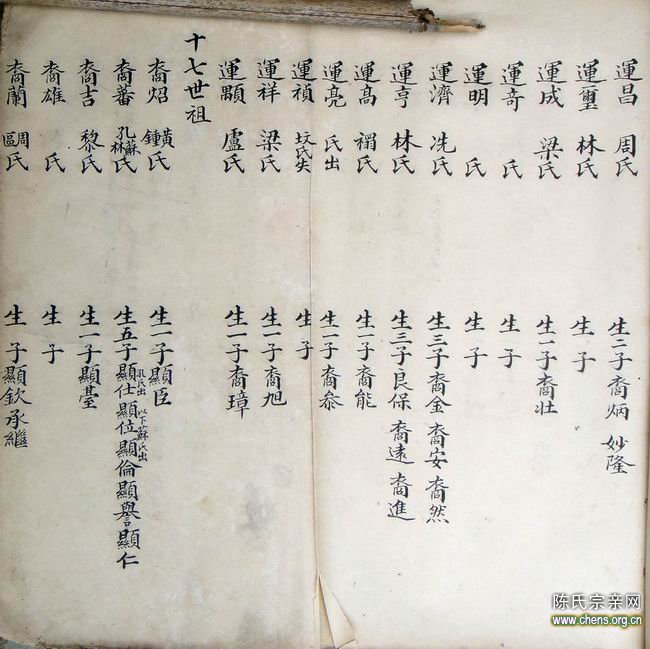 運昌 周氏 生二子裔炳 妙隆
運璽 林氏 生 子
運成 梁氏 生一子裔壯
運奇 氏 生 子
運明 氏 生 子
運濟 冼氏 生三子裔金 裔安 裔然
運亨 林氏 生三子良保 裔遠 裔進
運高 禤氏 生一子裔能
運亮 氏出 生一子裔叅
運禎 氏失 生 子
運祥 梁氏 生一子裔旭
運顯 盧氏 生一子裔璋
十七世祖
裔炤 黃鍾氏 生一子顯臣
裔蕃 蘇孔林氏 生五子顯仕孔氏出 顯位以下蘇氏出顯倫顯譽顯仁
裔吉 黎氏 生一子顯臺
裔雄 氏 生 子
裔蘭 周區氏 生 子顯欽承繼
陈氏宗亲网
www.chens.org.cn